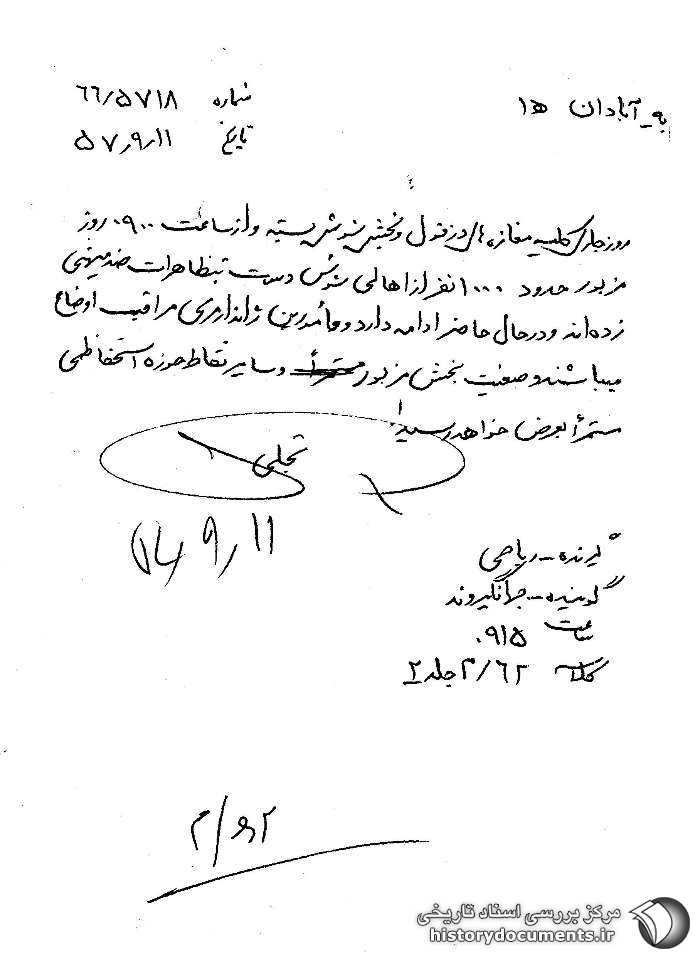 به_آبادان ۱ه
شماره ۶۶/۵۷۱۸
تاریخ ۵۷٫۹٫۱۱
روز جاری کلیه مغازه های دزفول و بخش شوش بسته و از ساعت ۰۹۰۰ روز
مزبور حدود ۱۰۰۰ نفر از اهالی شوش دست بتظاهرات ضد میهنی
زده‌اند و در حال حاضر ادامه دارد و مأمورین ژاندارمری مراقب اوضاع
میباشند وضعیت بخش مزبور مستمراً و سایر نقاط حوزه استحفاظی
مستمراً بعرض خواهد رسید.
تجلی
۵۷٫۹٫۱۱
گیرنده_ریاحی
گوینده_جهانگیروند
ساعت ۰۹۱۵
کلاسه ۳/۶۲ جلد ۲
مرکز بررسی اسناد تاریخی
historydocuments.ir